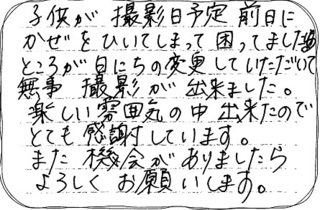 子供が 撮影日予定 前日に
かぜをひいてしまって 困ってました
ところが日にちの変更していただいて
無事 撮影が出来ました。
楽しい雰囲気の中 出来たので
とても 感謝しています。
また 機会がありましたら
よろしく お願いします。